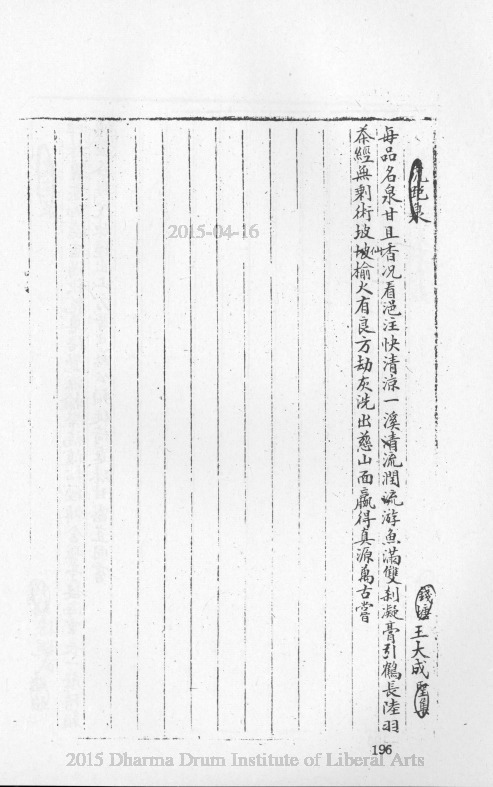 泉
錢塘 王大成
每品名泉甘且香况看浥注快清涼一溪清流潤流游魚滿雙剎凝膏引鶴長陸羽
茶經無剩術坡坡仙榆火有良方劫灰洗出慈山面贏得真源萬古嘗
196
2015-04-16
2015 Dharma Drum Institute of Liberal Arts